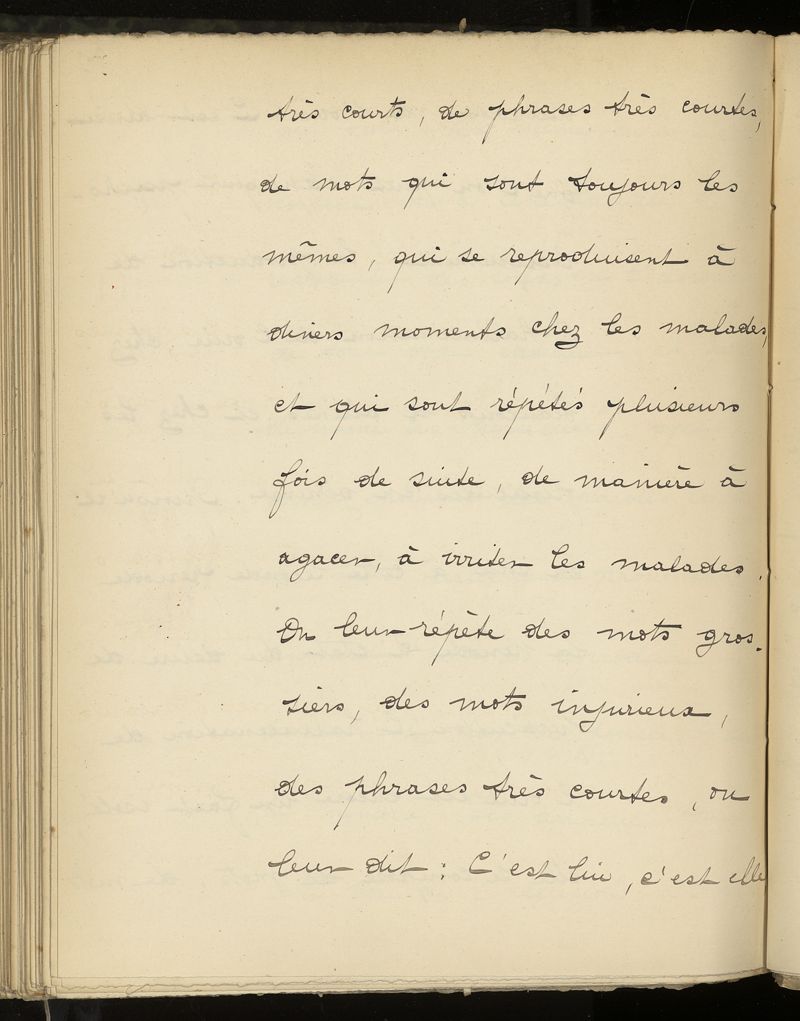 très courts, de phrases très courtes,
de mots qui sont toujours les
mêmes, qui se reproduisent à
divers moments chez les malades,
et qui sont répétés plusieurs
fois de suite, de manière à
agacer, à irriter les malades.
On leur répète des mots gros-
siers, des mots injurieux,
des phrases très courtes, on
leur dit : C'est lui, c'est elle